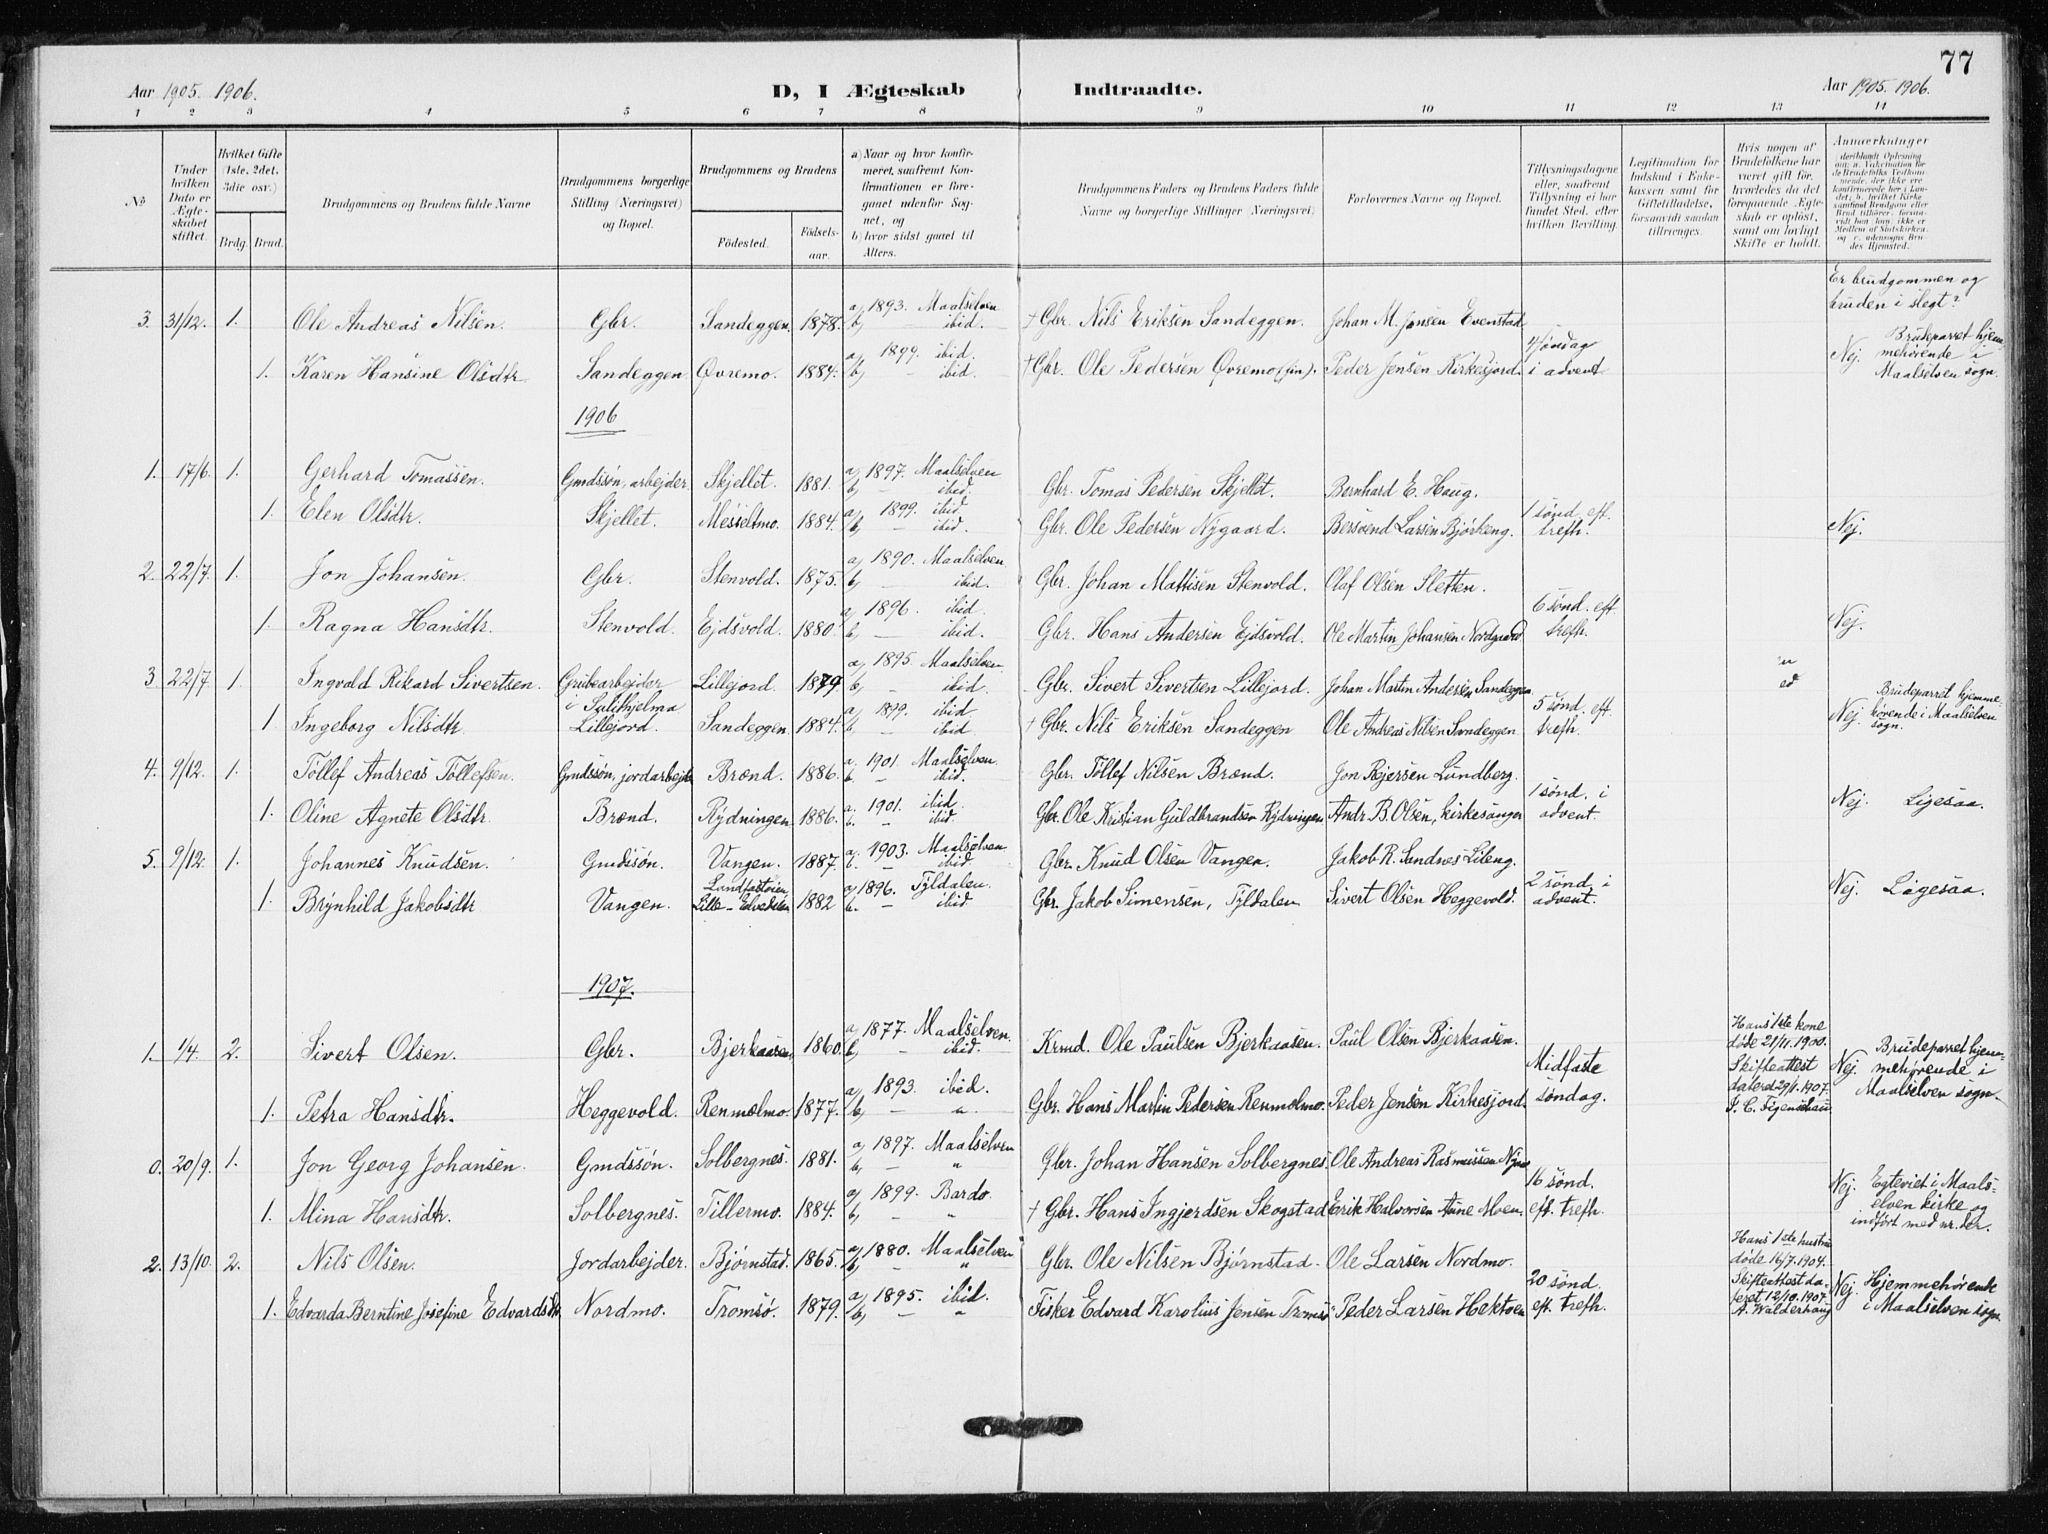 77
Aar 1905. 1906. D, I Ægteskab Indtraadte. Aar 1905. 1906.
1 2 3 4 5 6 7 8 9 10 11 12 13 14
No
Under hvilken Dato er Ægteskabet stiftet.
Hvilket Gifte (1ste. 2det. 3die osv.)
Brdg. Brud.
Brudgommens og Brudens fulde Navne
Brudgommens borgerlige Stilling (Næringsvei) og Bopæl.
Brudgommens og Brudens
Fødested. Fødsels-aar.
a) Naar og hvor konfirmeret, saafremt Konfirmationen er foregaaet udenfor Sognet, og
b) hvor sidst gaaet til Alters.
Brudgommens Faders og Brudens Faders fulde Navne og borgerlige Stillinger (Næringsvei)
Forlovernes Navne og Bopæl.
Tillysningsdagene eller, saafremt Tillysning ei har fundet Sted, efter hvilken Bevilling.
Legitimation for Indskud i Enkekassen samt for Giftetilladelse, forsaavidt saadan tiltrænges.
Hvis nogen af Brudefolkene har været gift før, hvorledes da det foregaaende Ægteskab er opløst, samt om lovligt Skifte er holdt.
Anmærkninger
Er brudgommen og bruden i slegt?
3. 31/12. 1. Ole Andreas Nilsen. Gbr. Sandeggen. 1878. a, 1893. Maalselven b, ibid. † Gbr. Nils Eriksen Sandeggen. Johan M. Jensen Evenstad
1. Karen Hansine Olsdtr. Sandeggen Øvremo. 1884. a, 1899. ibid. b, — ibid. † Gbr. Ole Pedersen Øvremo (jun). Peder Jensen Kirkesjord. 4 søndag i advent Nej. Brudeparret hjemmehørende i Maalselven sogn.
1906
1. 17/6. 1. Gerhard Tomassen. Gmdssøn, arbejder Skjellet. 1881. a, 1897. Maalselven b, — ibid. Gbr. Tomas Pedersen Skjellet. Bernhard E. Haug.
1. Elen Olsdtr. Skjellet. Messeltmo. 1884. a, 1899. ibid b, — ibid. Gbr. Ole Pedersen Nygaard. Bersvend Larsen Bjørkeng. 1 sønd. eft. trefh. Nej.
2. 22/7. 1. Jon Johansen. Gbr. Stenvold. 1875. a, 1890. Maalselven b, — ibid. Gbr. Johan Mattisen Stenvold. Olaf Olsen Sletten.
1. Ragna Hansdtr. Stenvold. Ejdsvold. 1880. a, 1896. ibid. b, — ibid. Gbr. Hans Andersen Ejdsvold. Ole Martin Johansen Nordgaard 6 sønd. eft. trefh. Nej.
3 22/7 1. Ingvald Rikard Sivertsen. Grubearbejder i Sulithjelma Lillejord. 1879. a, 1895. Maalselven b, — ibid Gbr. Sivert Sivertsen Lillejord. Johan Martin Andersen Sandeggen
1. Ingeborg Nilsdtr. Lillejord. Sandeggen 1884. a, 1899. ibid b, — ibid † Gbr. Nils Eriksen Sandeggen Ole Andreas Nilsen Sandeggen 5 sønd. eft. trefh. Nej. Brudeparret hjemmehørende i Maalselven sogn.
4. 9/12. 1. Tollef Andreas Tollefsen. Gmdssøn, jordarbejder Brænd. 1886. a. 1901. Maalselven. b. — ibid. Gbr. Tollef Nilsen Brænd. Jon Rejersen Lundberg.
1. Oline Agnete Olsdtr. Brænd. Rydningen 1886. a. 1901. ibid. b. — ibid. Gbr. Ole Kristian Guldbrandsen Rydningen Andr. B. Olsen, kirkesanger 1 sønd. i advent. Nej. Ligesaa.
5. 9/12. 1. Johannes Knudsen. Gmdssøn. Vangen. 1887. a. 1903. Maalselven b. — ibid Gbr. Knud Olsen Vangen. Jakob R. Sandnes Lileng.
1. Brynhild Jakobsdtr Vangen. Lille-Elvedalen 1882 a, 1896. Tyldalen. b. — ibid Gbr. Jakob Simensen, Tyldalen Sivert Olsen Heggevold. 2 sønd. i advent. Nej. Ligesaa.
1907.
1. 1/4. 2. Sivert Olsen. Gbr. Bjerkaasen 1860. a, 1877. Maalselven. b, — ibid. Krmd. Ole Paulsen Bjerkaasen. Paul Olsen Bjerkaasen. Hans 1ste kone døde 21/11. 1900. Skifteattest dateret 29/1. 1907.
1. Petra Hansdtr. Heggevold. Renmælmo. 1877. a, 1893. ibid. b, — " Gbr. Hans Martin Pedersen Renmælmo. Peder Jensen Kirkesjord. Midfaste søndag. Nej. Brudeparret hjemmehørende i Maalselven sogn.
0. 20/9. 1. Jon Georg Johansen. Gmdssøn. Solbergnes. 1881. a, 1897. Maalselven b, — " Gbr. Johan Hansen Solbergnes. Ole Andreas Rasmussen
1. Mina Hansdtr. Solbergnes. Tillermo. 1884. a, 1899. Bardo. b, — " † Gbr. Hans Ingjerdsen Skogstad Erik Halvorsen Aune Moen. 16 sønd. eft. trefh. Nej. Egteviet i Maalselven kirke og indført med nr. der.
2. 13/10. 2. Nils Olsen. Jordarbejder. Bjørnstad. 1865. a, 1880. Maalselven b, — " Gbr. Ole Nilsen Bjørnstad. Ole Larsen Nordmo. Hans 1ste hustru døde 16/7. 1904. Skifteattest dateret 12/10. 1907. A. Walderhaug
1. Edvarda Berntine Josefine Edvardsdtr. Nordmo. Tromsø. 1879. a, 1895. ibid. b, — " Fisker Edvard Karolius Jensen Tromsø Peder Larsen Hektoen 20 sønd. eft. trefh. Nej. Hjemmehørende i Maalselven sogn.